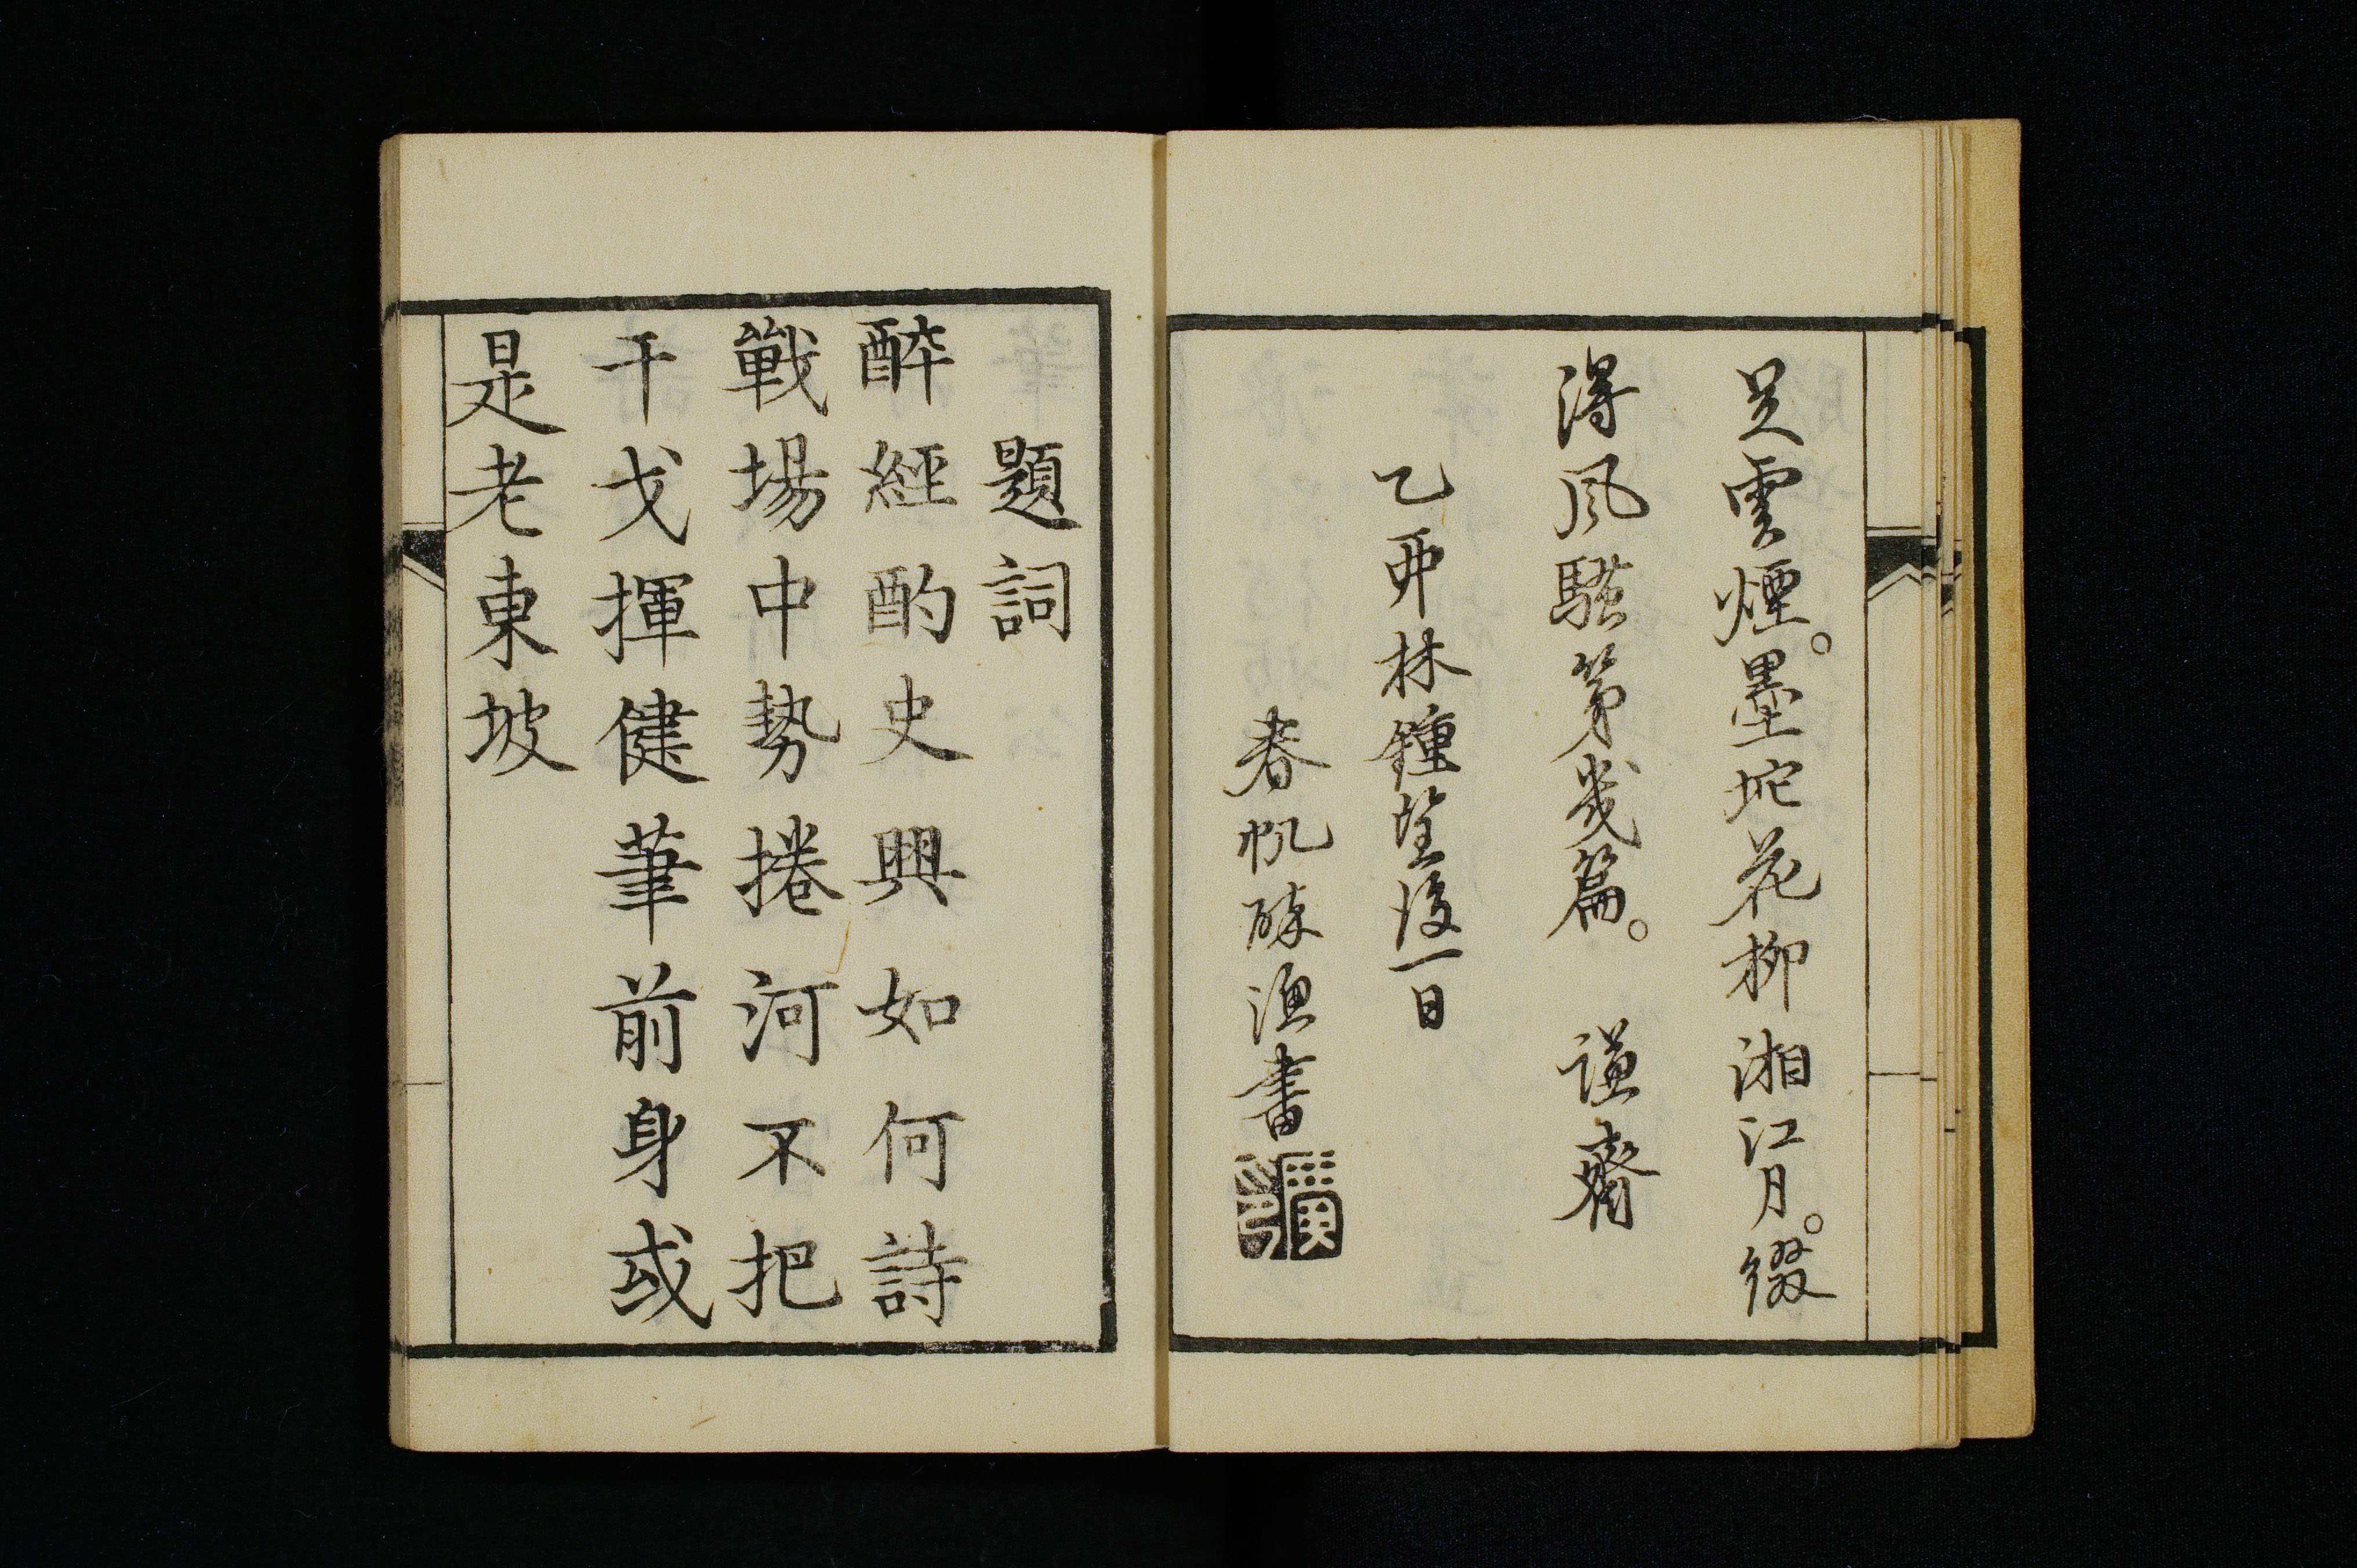 足雲煙。墨坨花柳湘江月。綴
得風騷第幾篇。 謙齋
乙亜林鐘望後一日
春帆醉漁書
題詞
醉經酌史興如何詩
戰場中勢捲河不把
干戈揮健筆前身或
是老東坡